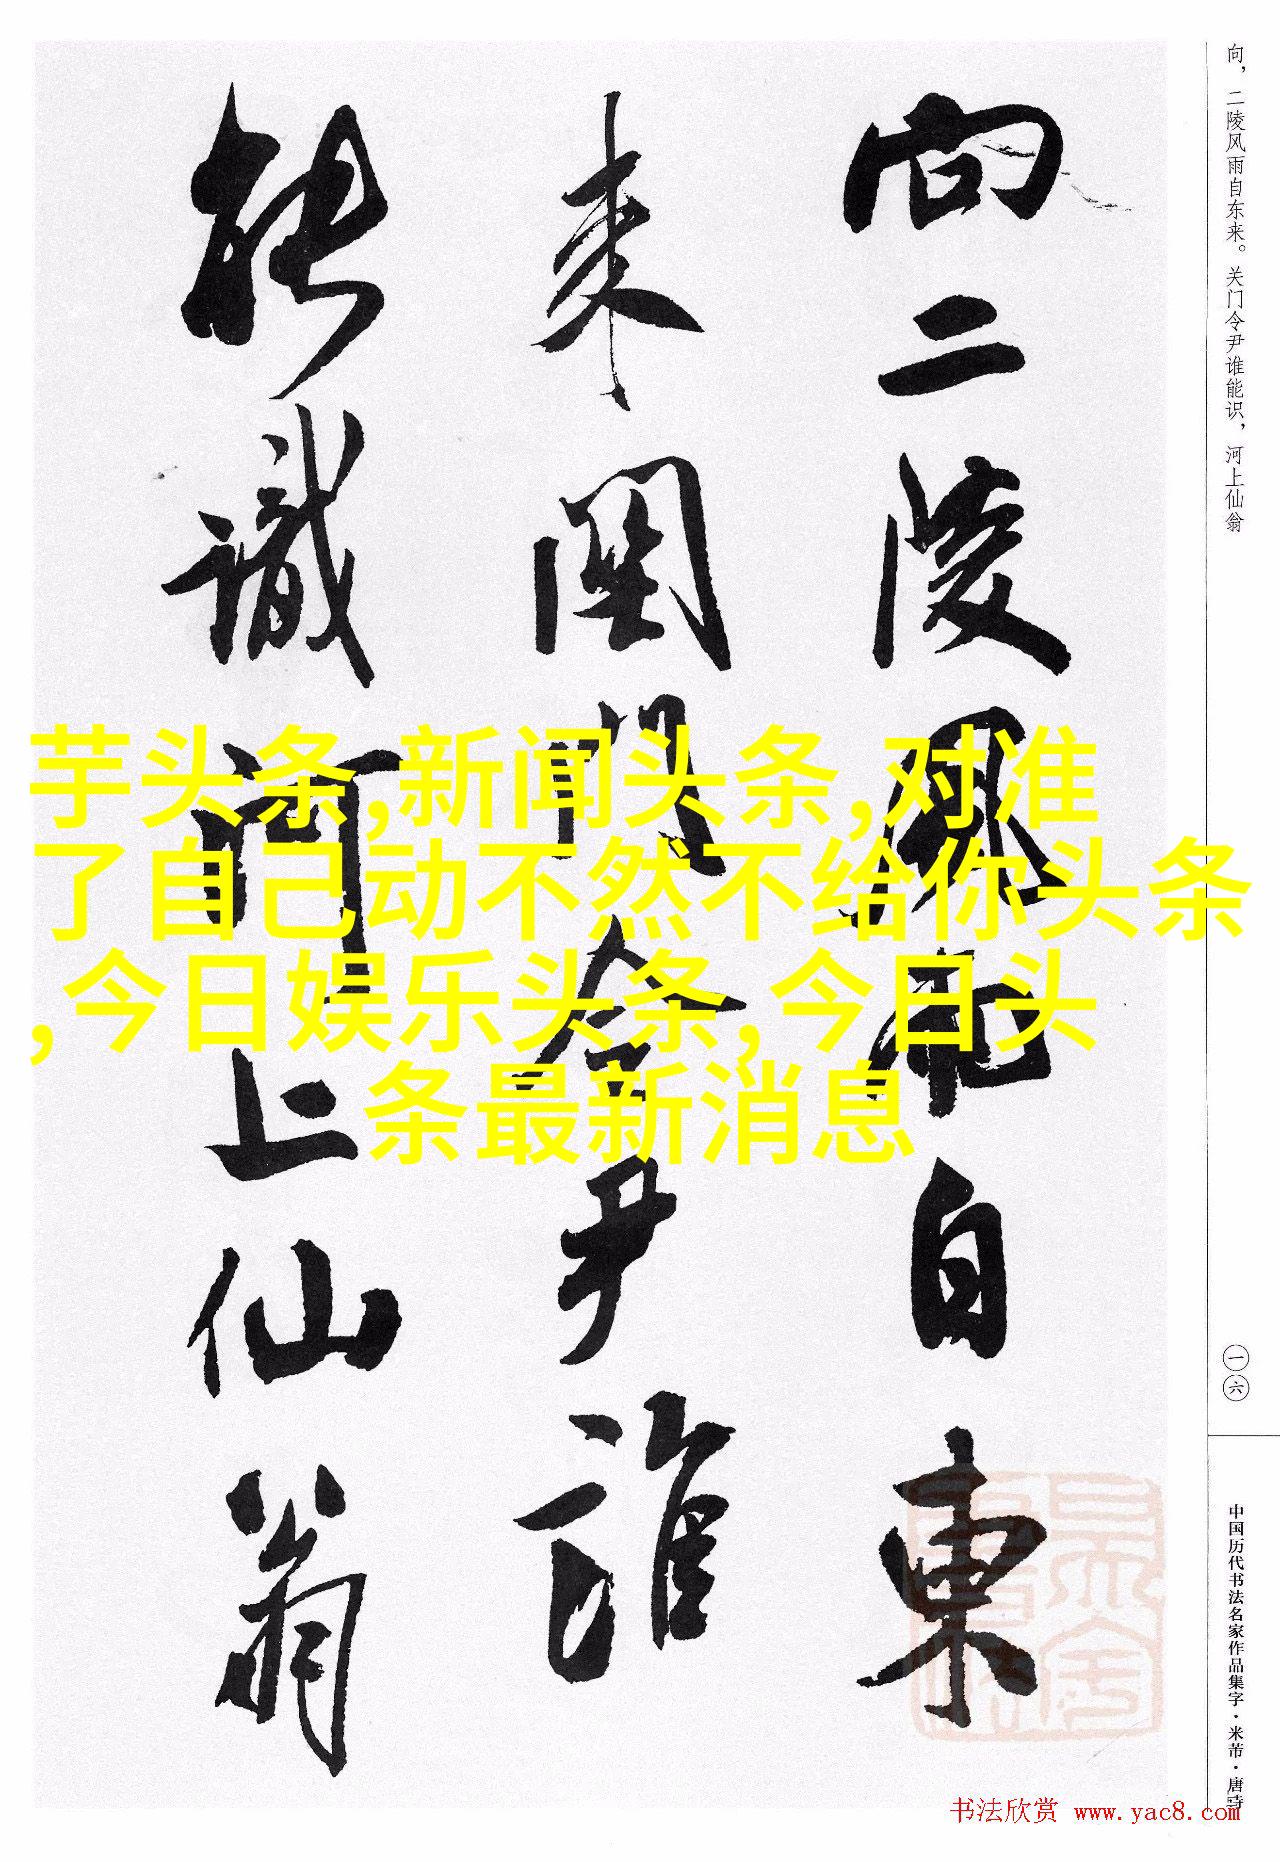 向，二陵风雨自东来。关门令尹谁能识，河上仙翁
一六
中国历代书法名家作品集字·米芾·唐诗
向二陵風雨自東
来關門令尹誰
能識河上仙翁
芋头条,新闻头条,对准
了自己动不然不给你头条
,今日娱乐头条,今日头
条最新消息
书法欣赏 www.yac8.com